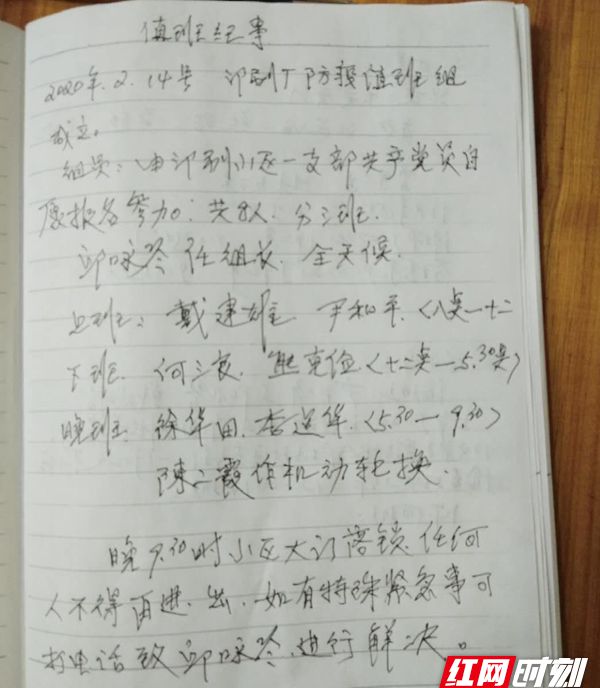 值班纪事
2020年.2.14号 印刷厂防疫值班组
成立。
组员:由印刷小区一支部共产党员自
愿报名参加:共8人.分三班.
邱咏冬任组长.全天候.
上班:戴建雄 尹和平.(八点—十二
下班.何三良.熊克俭(十二点—5.30点)
晚班:徐华田.李运华.(5.30—9.30)
陈二霞作机动轮换.
晚9.30时小区大门落锁.任何
人不得再进.出.如有特殊紧急事可
打电话致邱咏冬.进行解决。
红网时刻